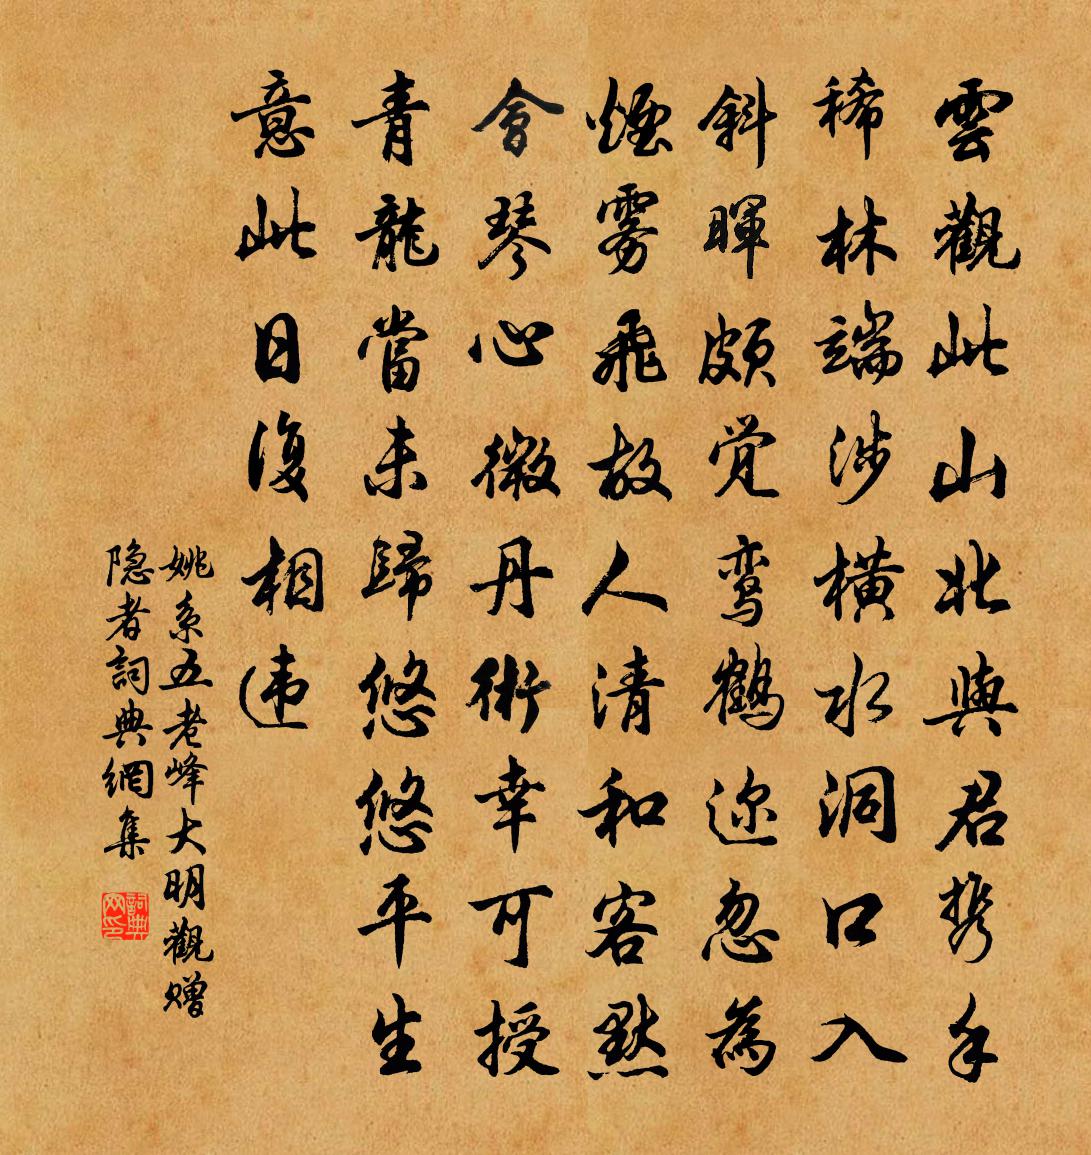 雲觀此山北與君携手
稀林端涉橫水洞口入
斜暉頗觉鸾鶴迩忽為
煙雾飛故人清和客默
會琴心微丹術幸可授
青龍當未歸悠悠平生
意此日復相违
姚系五老峰大明觀赠
隐者詞典網集
詞典网印